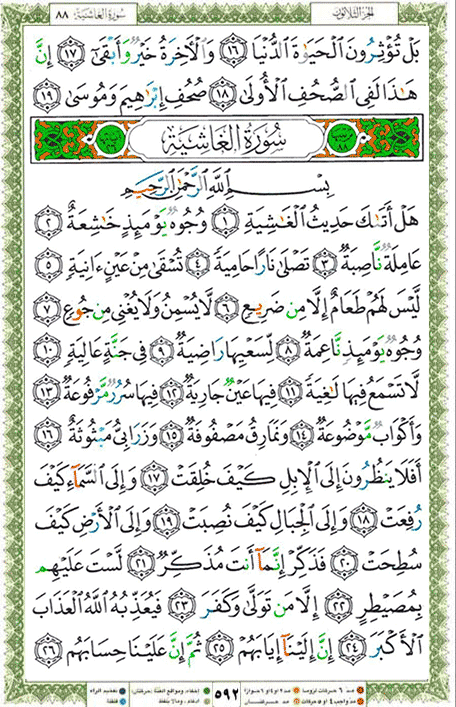 سُورَةُ الغَاشِيَةِ ٨٨ الجزء الثلاثون
بَلْ تُؤْثِرُونَ الْحَيَوٰةَ الدُّنْيَا ١٦ وَالْآخِرَةُ خَيْرٌ وَأَبْقَىٰ ١٧ إِنَّ
هَٰذَا لَفِي الصُّحُفِ الْأُولَىٰ ١٨ صُحُفِ إِبْرَاهِيمَ وَمُوسَىٰ ١٩
سُورَةُ الغَاشِيَةِ ٨٨
بِسْمِ اللَّهِ الرَّحْمَٰنِ الرَّحِيمِ
هَلْ أَتَىٰكَ حَدِيثُ الْغَٰشِيَةِ ١ وُجُوهٌ يَوْمَئِذٍ خَٰشِعَةٌ ٢
عَامِلَةٌ نَّاصِبَةٌ ٣ تَصْلَىٰ نَارًا حَامِيَةً ٤ تُسْقَىٰ مِنْ عَيْنٍ ءَانِيَةٍ ٥
لَّيْسَ لَهُمْ طَعَامٌ إِلَّا مِن ضَرِيعٍ ٦ لَّا يُسْمِنُ وَلَا يُغْنِي مِن جُوعٍ ٧
وُجُوهٌ يَوْمَئِذٍ نَّاعِمَةٌ ٨ لِّسَعْيِهَا رَاضِيَةٌ ٩ فِي جَنَّةٍ عَالِيَةٍ ١٠
لَّا تَسْمَعُ فِيهَا لَٰغِيَةً ١١ فِيهَا عَيْنٌ جَارِيَةٌ ١٢ فِيهَا سُرُرٌ مَّرْفُوعَةٌ ١٣
وَأَكْوَابٌ مَّوْضُوعَةٌ ١٤ وَنَمَارِقُ مَصْفُوفَةٌ ١٥ وَزَرَابِيُّ مَبْثُوثَةٌ ١٦
أَفَلَا يَنظُرُونَ إِلَى الْإِبِلِ كَيْفَ خُلِقَتْ ١٧ وَإِلَى السَّمَآءِ كَيْفَ
رُفِعَتْ ١٨ وَإِلَى الْجِبَالِ كَيْفَ نُصِبَتْ ١٩ وَإِلَى الْأَرْضِ كَيْفَ
سُطِحَتْ ٢٠ فَذَكِّرْ إِنَّمَآ أَنتَ مُذَكِّرٌ ٢١ لَّسْتَ عَلَيْهِم
بِمُصَيْطِرٍ ٢٢ إِلَّا مَن تَوَلَّىٰ وَكَفَرَ ٢٣ فَيُعَذِّبُهُ اللَّهُ الْعَذَابَ
الْأَكْبَرَ ٢٤ إِنَّ إِلَيْنَآ إِيَابَهُمْ ٢٥ ثُمَّ إِنَّ عَلَيْنَا حِسَابَهُم ٢٦
٥٩٢